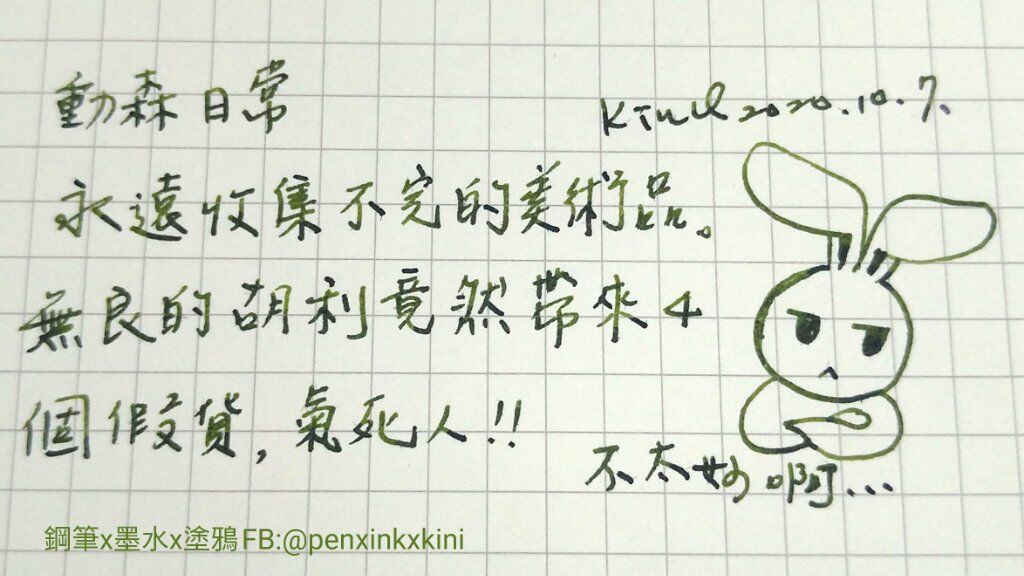 動森日常
Kini 2020.10.7.
永遠收集不完的美術品。
無良的胡利竟然帶來4
個假貨，氣死人!!
不太妙啊...
鋼筆x墨水x塗鴉 FB:@penxinkxkini